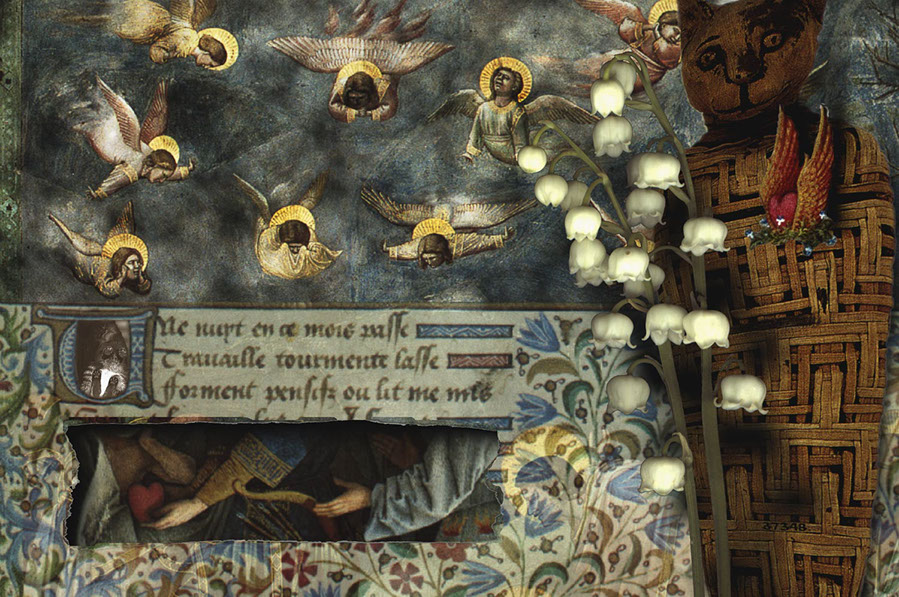 Vne nuyt en ce mois passe
Travaille tourmente lasse
fforment pensif ou lit me mis
37348